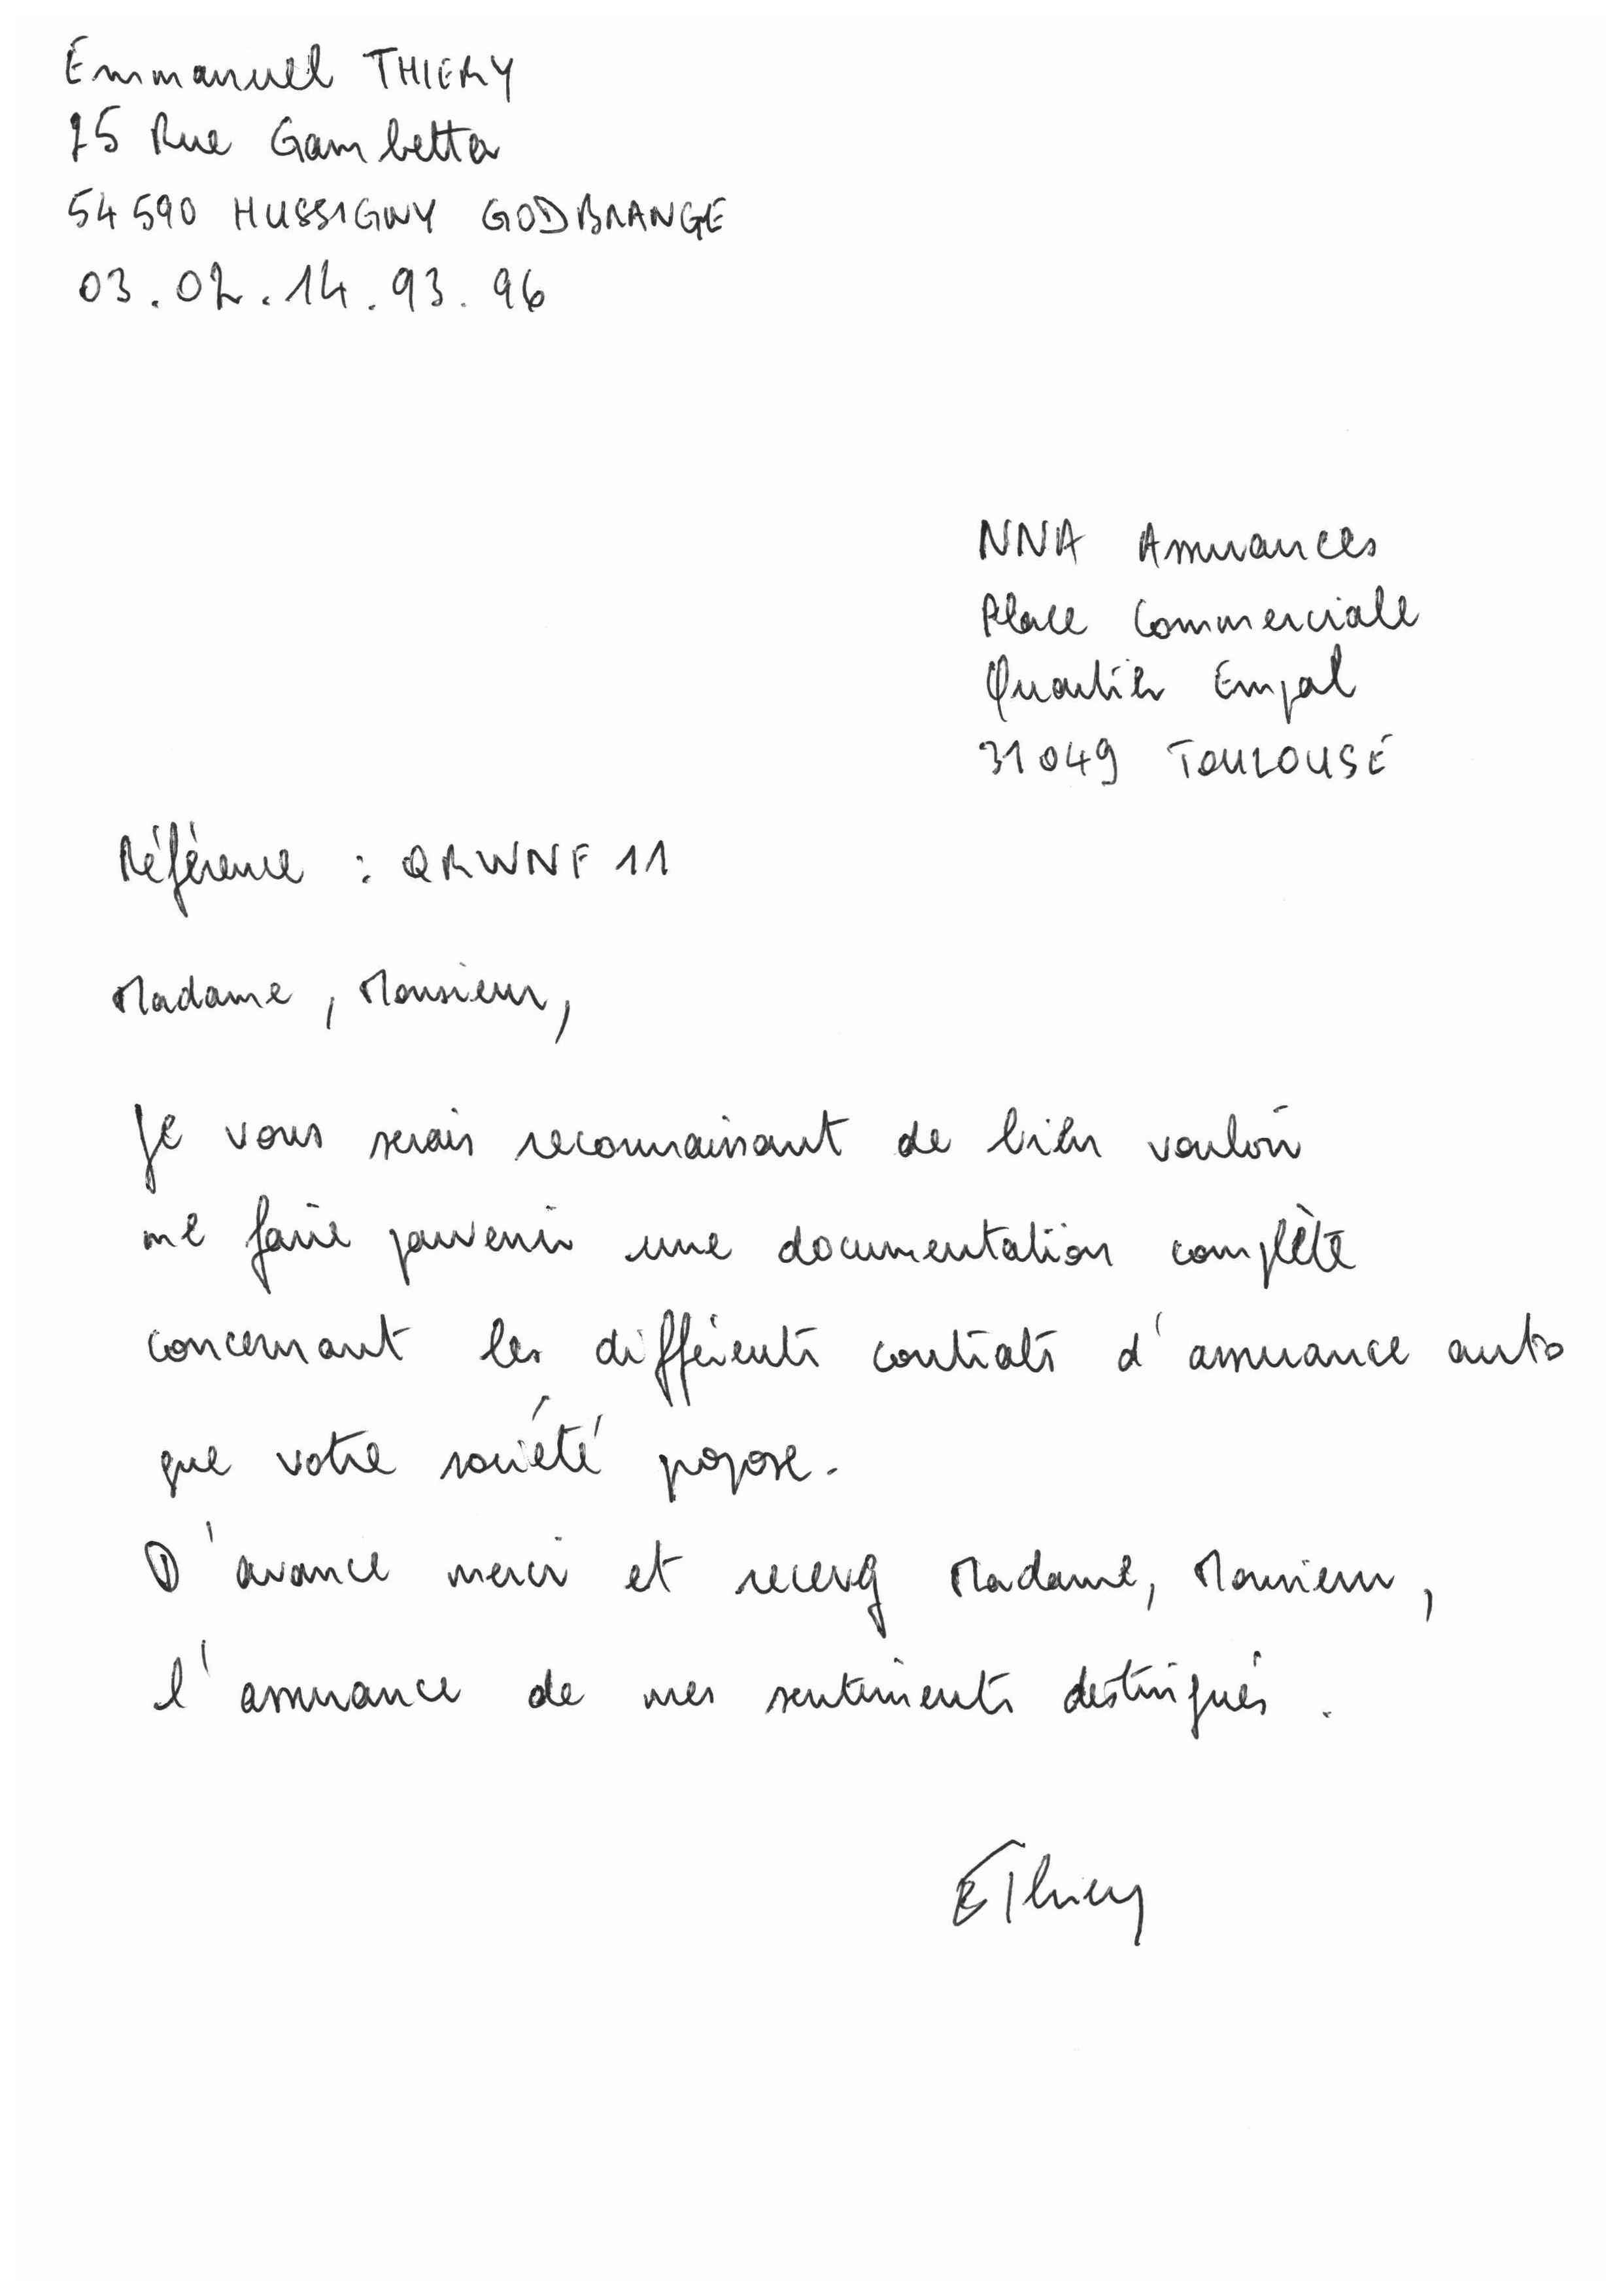 Emmanuel THIERY
75 Rue Gambetta
54590 HUSSIGNY GODBRANGE
03.02.14.93.96
NNA Assurances
Place Commerciale
Quartier Empal
31049 TOULOUSE
Référence : QRWNF11
Madame, Monsieur,
Je vous serais reconnaissant de bien vouloir
me faire parvenir une documentation complète
concernant les différents contrats d'assurance auto
que votre société propose.
D'avance merci et recevez Madame, Monsieur,
l'assurance de mes sentiments destingués.
EThiery